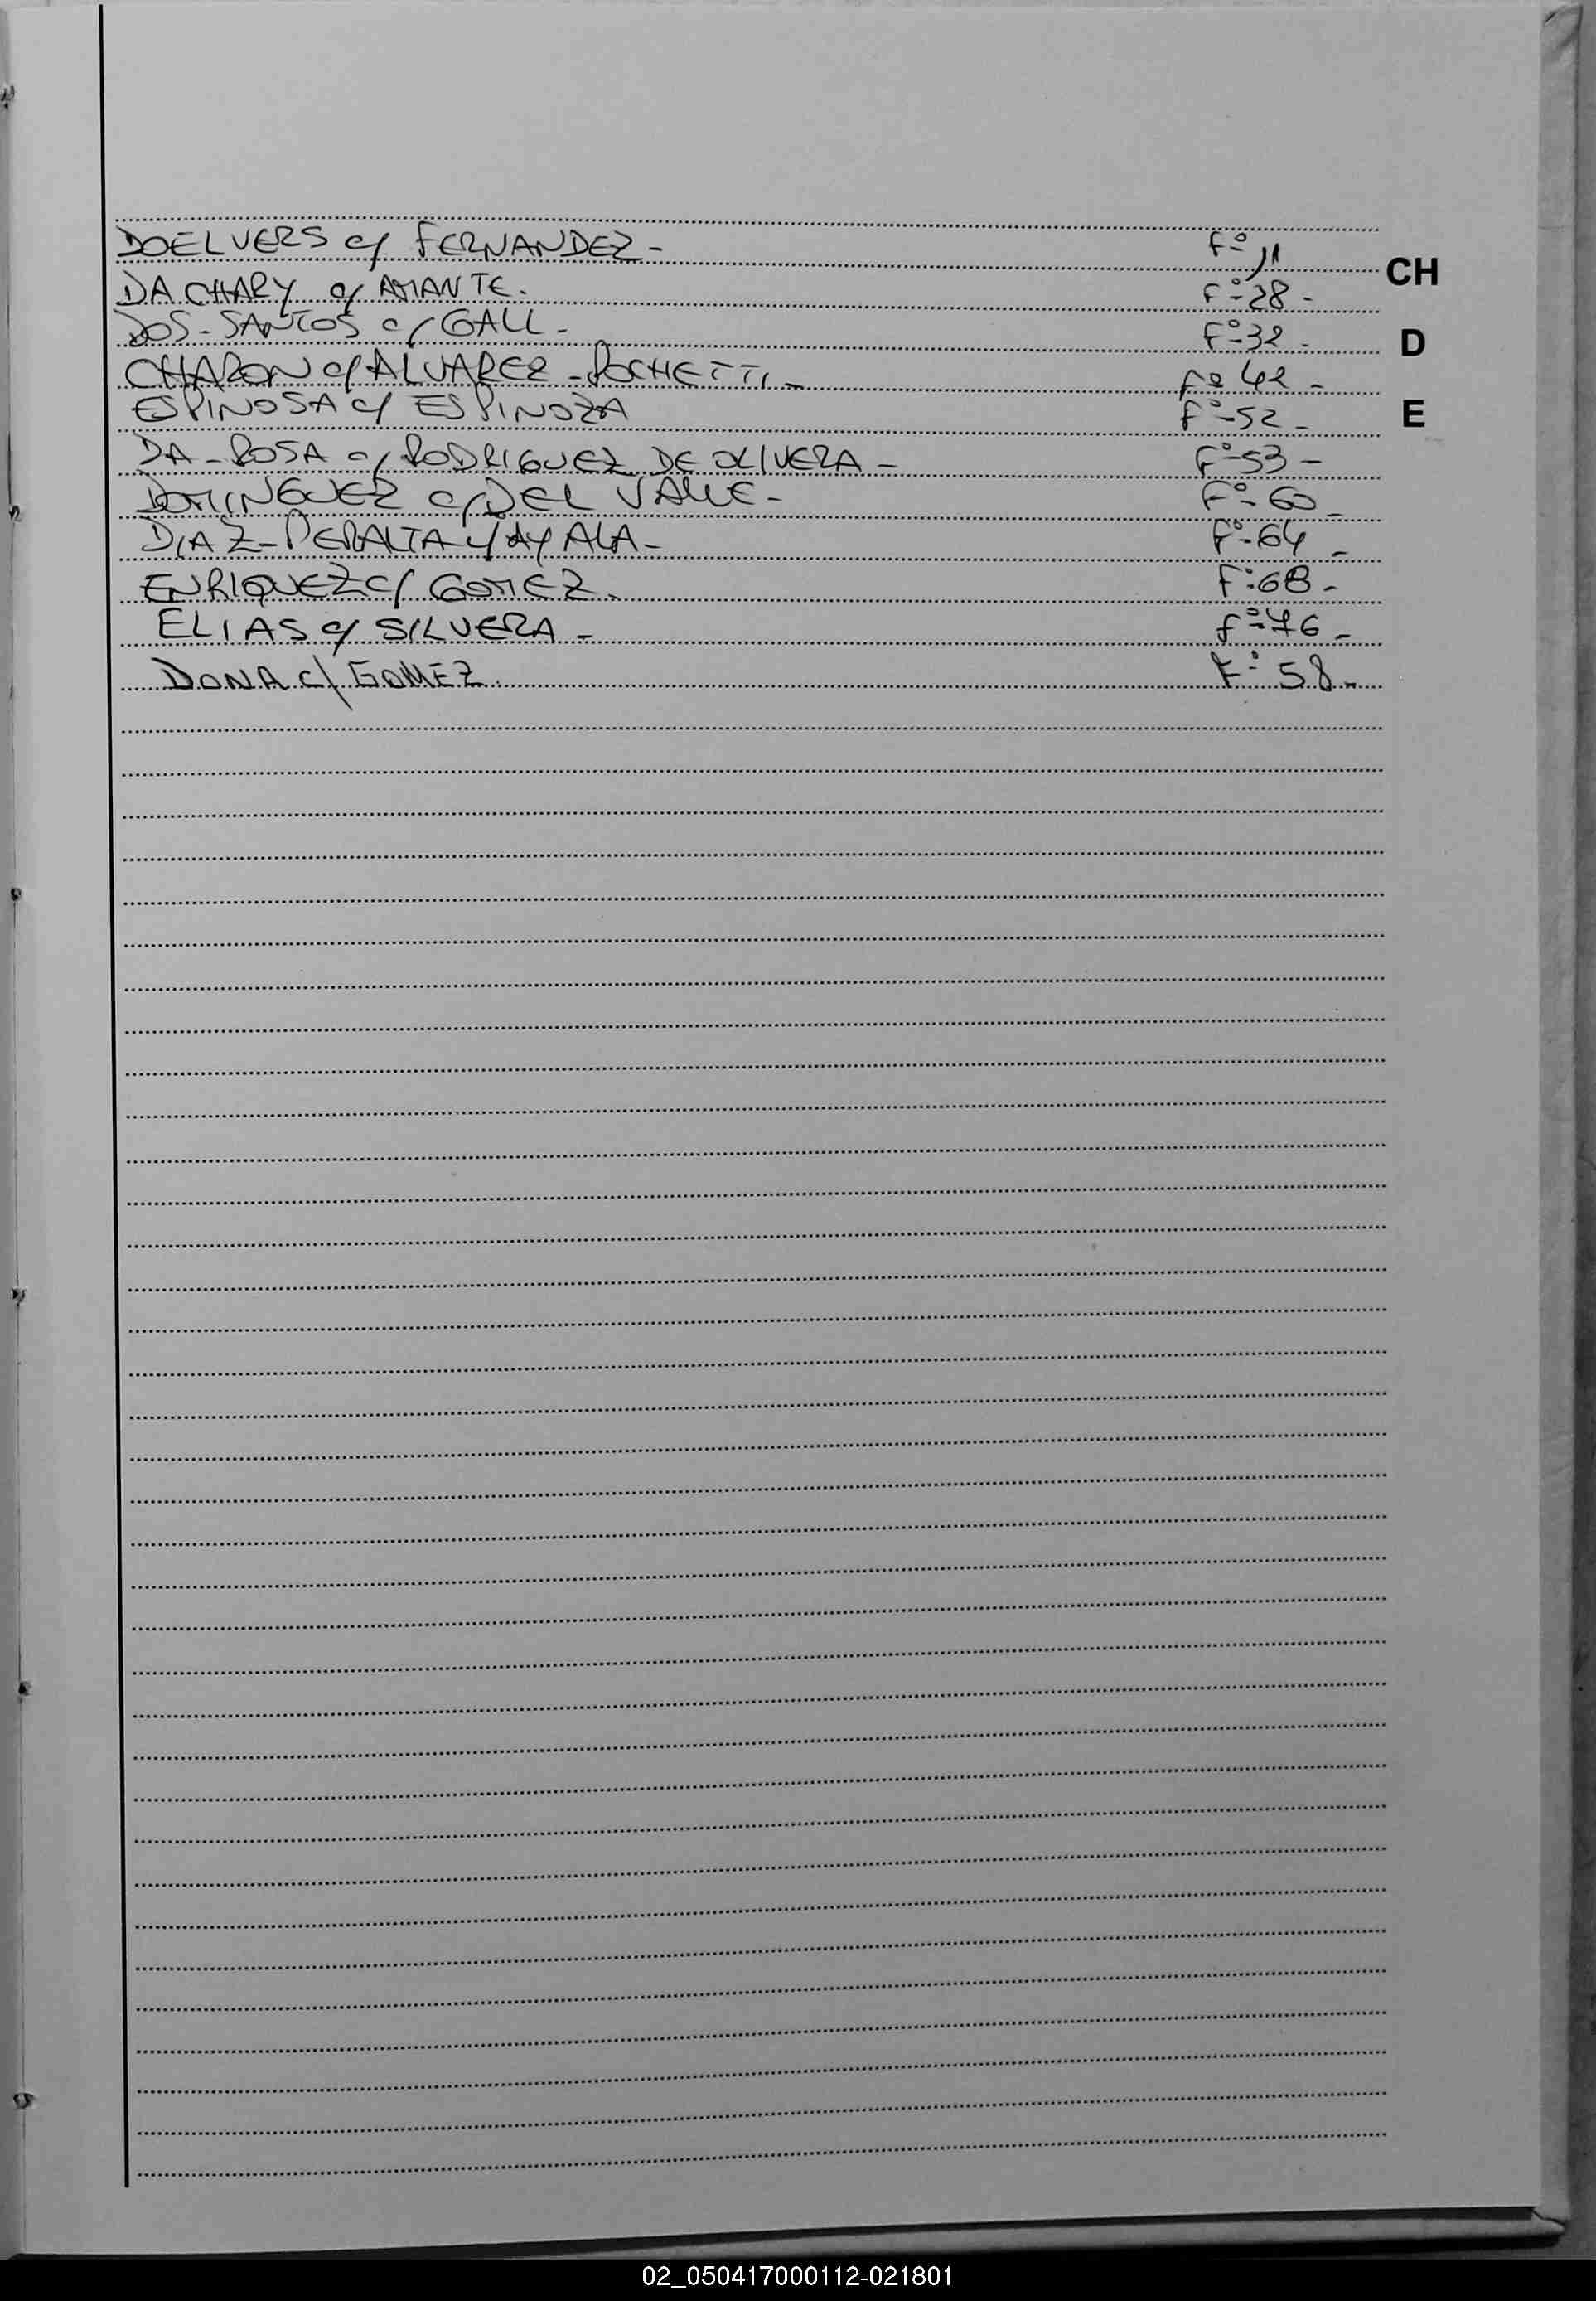 DOELVERS c/ FERNANDEZ - Fº 11
CH
DACHARY c/ AMANTE. Fº 28 -
DOS-SANTOS c/ GALL - Fº 32 -
D
CHARON c/ ALVAREZ - POCHETTI - Fº 42 -
ESPINOSA c/ ESPINOZA Fº 52 -
E
DA-ROSA c/ RODRIGUEZ DE OLIVERA - Fº 53 -
DOMINGUEZ c/ DEL VALLE - Fº 60 -
DIAZ-PERALTA c/ AYALA - Fº 64 -
ENRIQUEZ c/ GOMEZ. Fº 68 -
ELIAS c/ SILVERA - Fº 76 -
DONA c/ GOMEZ. Fº 58 -
02_050417000112-021801